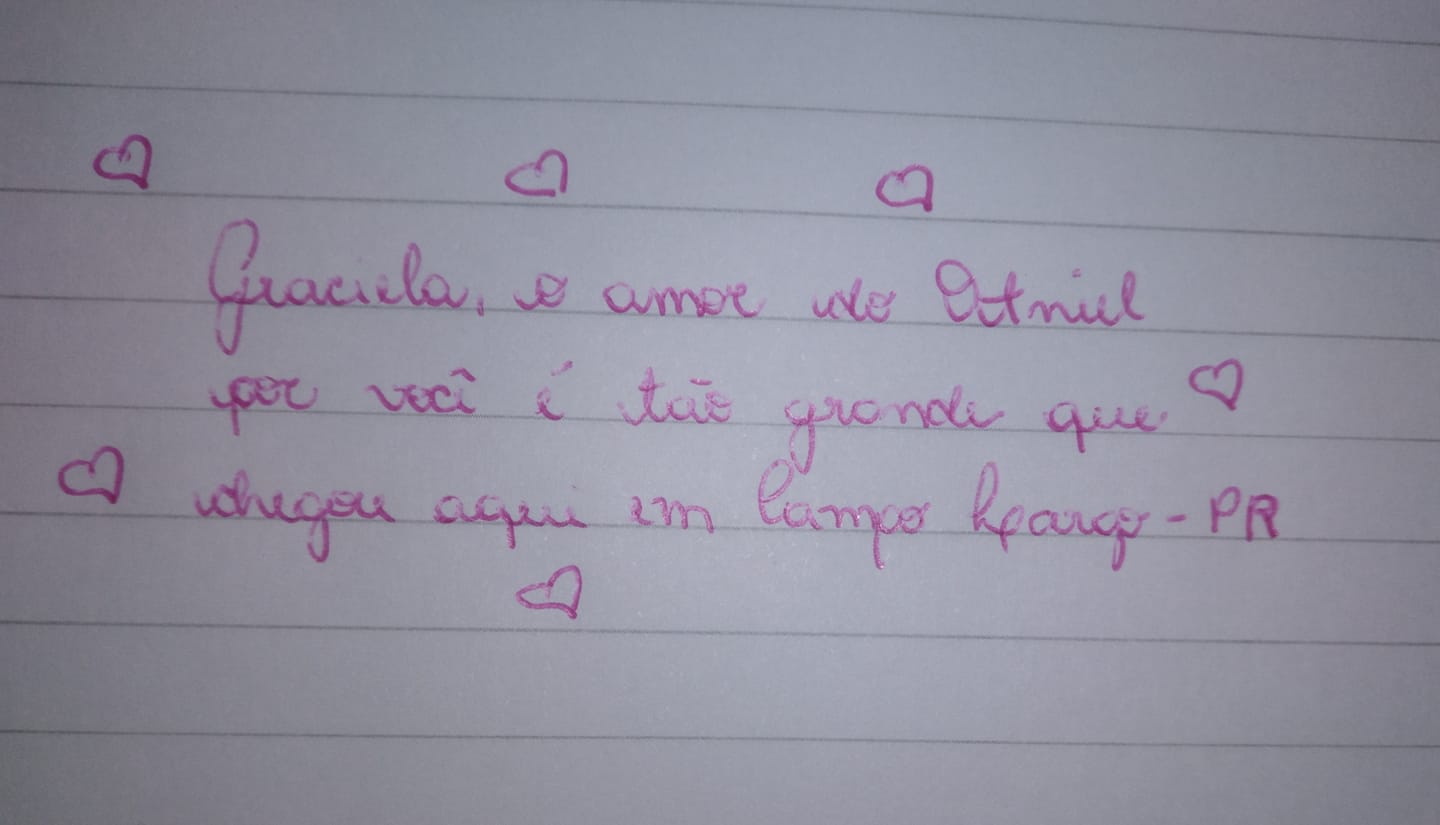 Graciela, o amor do Otniel
por você é tão grande que
chegou aqui em Campo Largo - PR